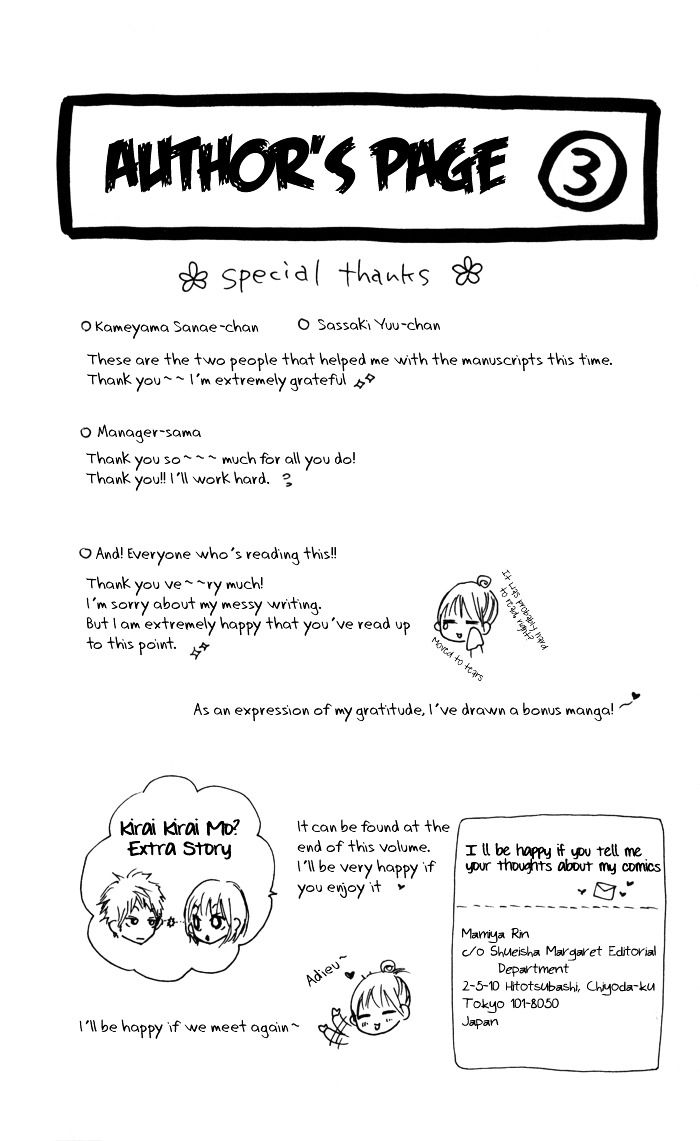 AUTHOR'S PAGE 3
special thanks
Kameyama Sanae-chan
Sassaki Yuu-chan
These are the two people that helped me with the manuscripts this time.
Thank you~~ I'm extremely grateful
Manager-sama
Thank you so~~~ much for all you do!
Thank you!! I'll work hard.
And! Everyone who's reading this!!
Thank you ve~~ry much!
I'm sorry about my messy writing.
But I am extremely happy that you've read up
to this point.
It was probably hard
to read right?
Moved to tears
As an expression of my gratitude, I've drawn a bonus manga!
Kirai Kirai Mo?
Extra Story
It can be found at the
end of this volume.
I'll be very happy if
you enjoy it
Adieu~
I'll be happy if we meet again~
I ll be happy if you tell me
your thoughts about my comics
Mamiya Rin
c/o Shueisha Margaret Editorial
Department
2-5-10 Hitotsubashi, Chiyoda-ku
Tokyo 101-8050
Japan